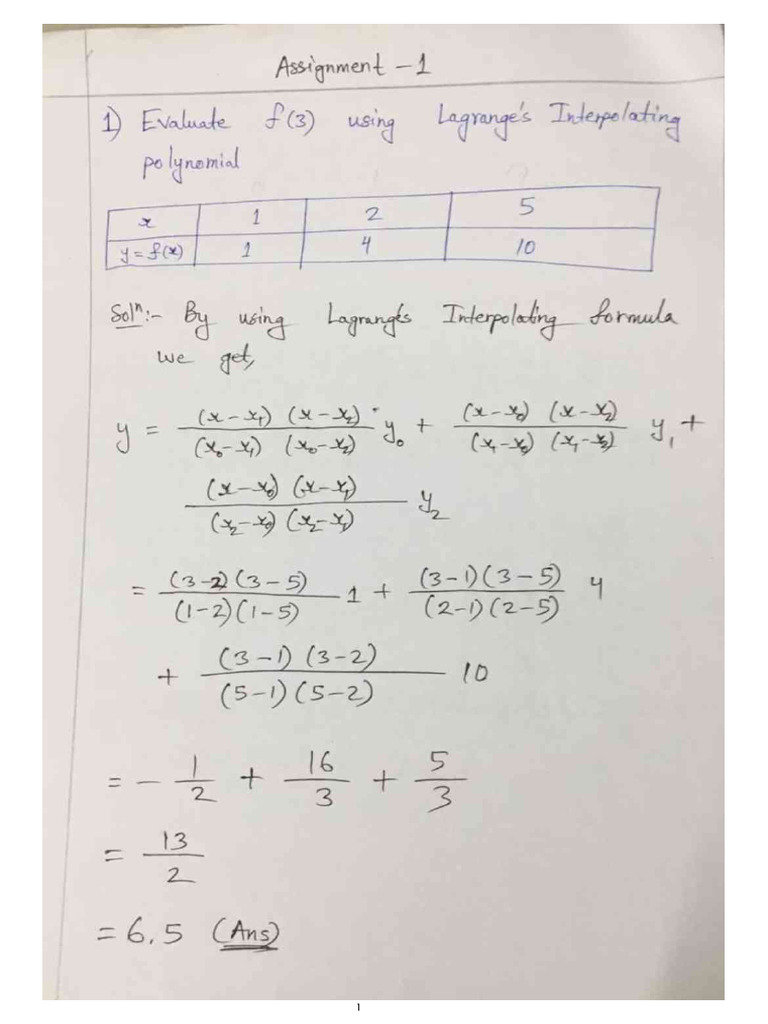 Assignment - 1
1) Evaluate f(3) using Lagrange's Interpolating
polynomial
x 1 2 5
y = f(x) 1 4 10
Solⁿ:- By using Lagrange's Interpolating formula
we get,
y = (x-x₁) (x-x₂) / (x₀-x₁) (x₀-x₂) y₀ + (x-x₀) (x-x₂) / (x₁-x₀) (x₁-x₂) y₁ +
(x-x₀) (x-x₁) / (x₂-x₀) (x₂-x₁) y₂
= (3-2) (3-5) / (1-2) (1-5) 1 + (3-1) (3-5) / (2-1) (2-5) 4
+ (3-1) (3-2) / (5-1) (5-2) 10
= - 1/2 + 16/3 + 5/3
= 13/2
= 6.5 (Ans)
1